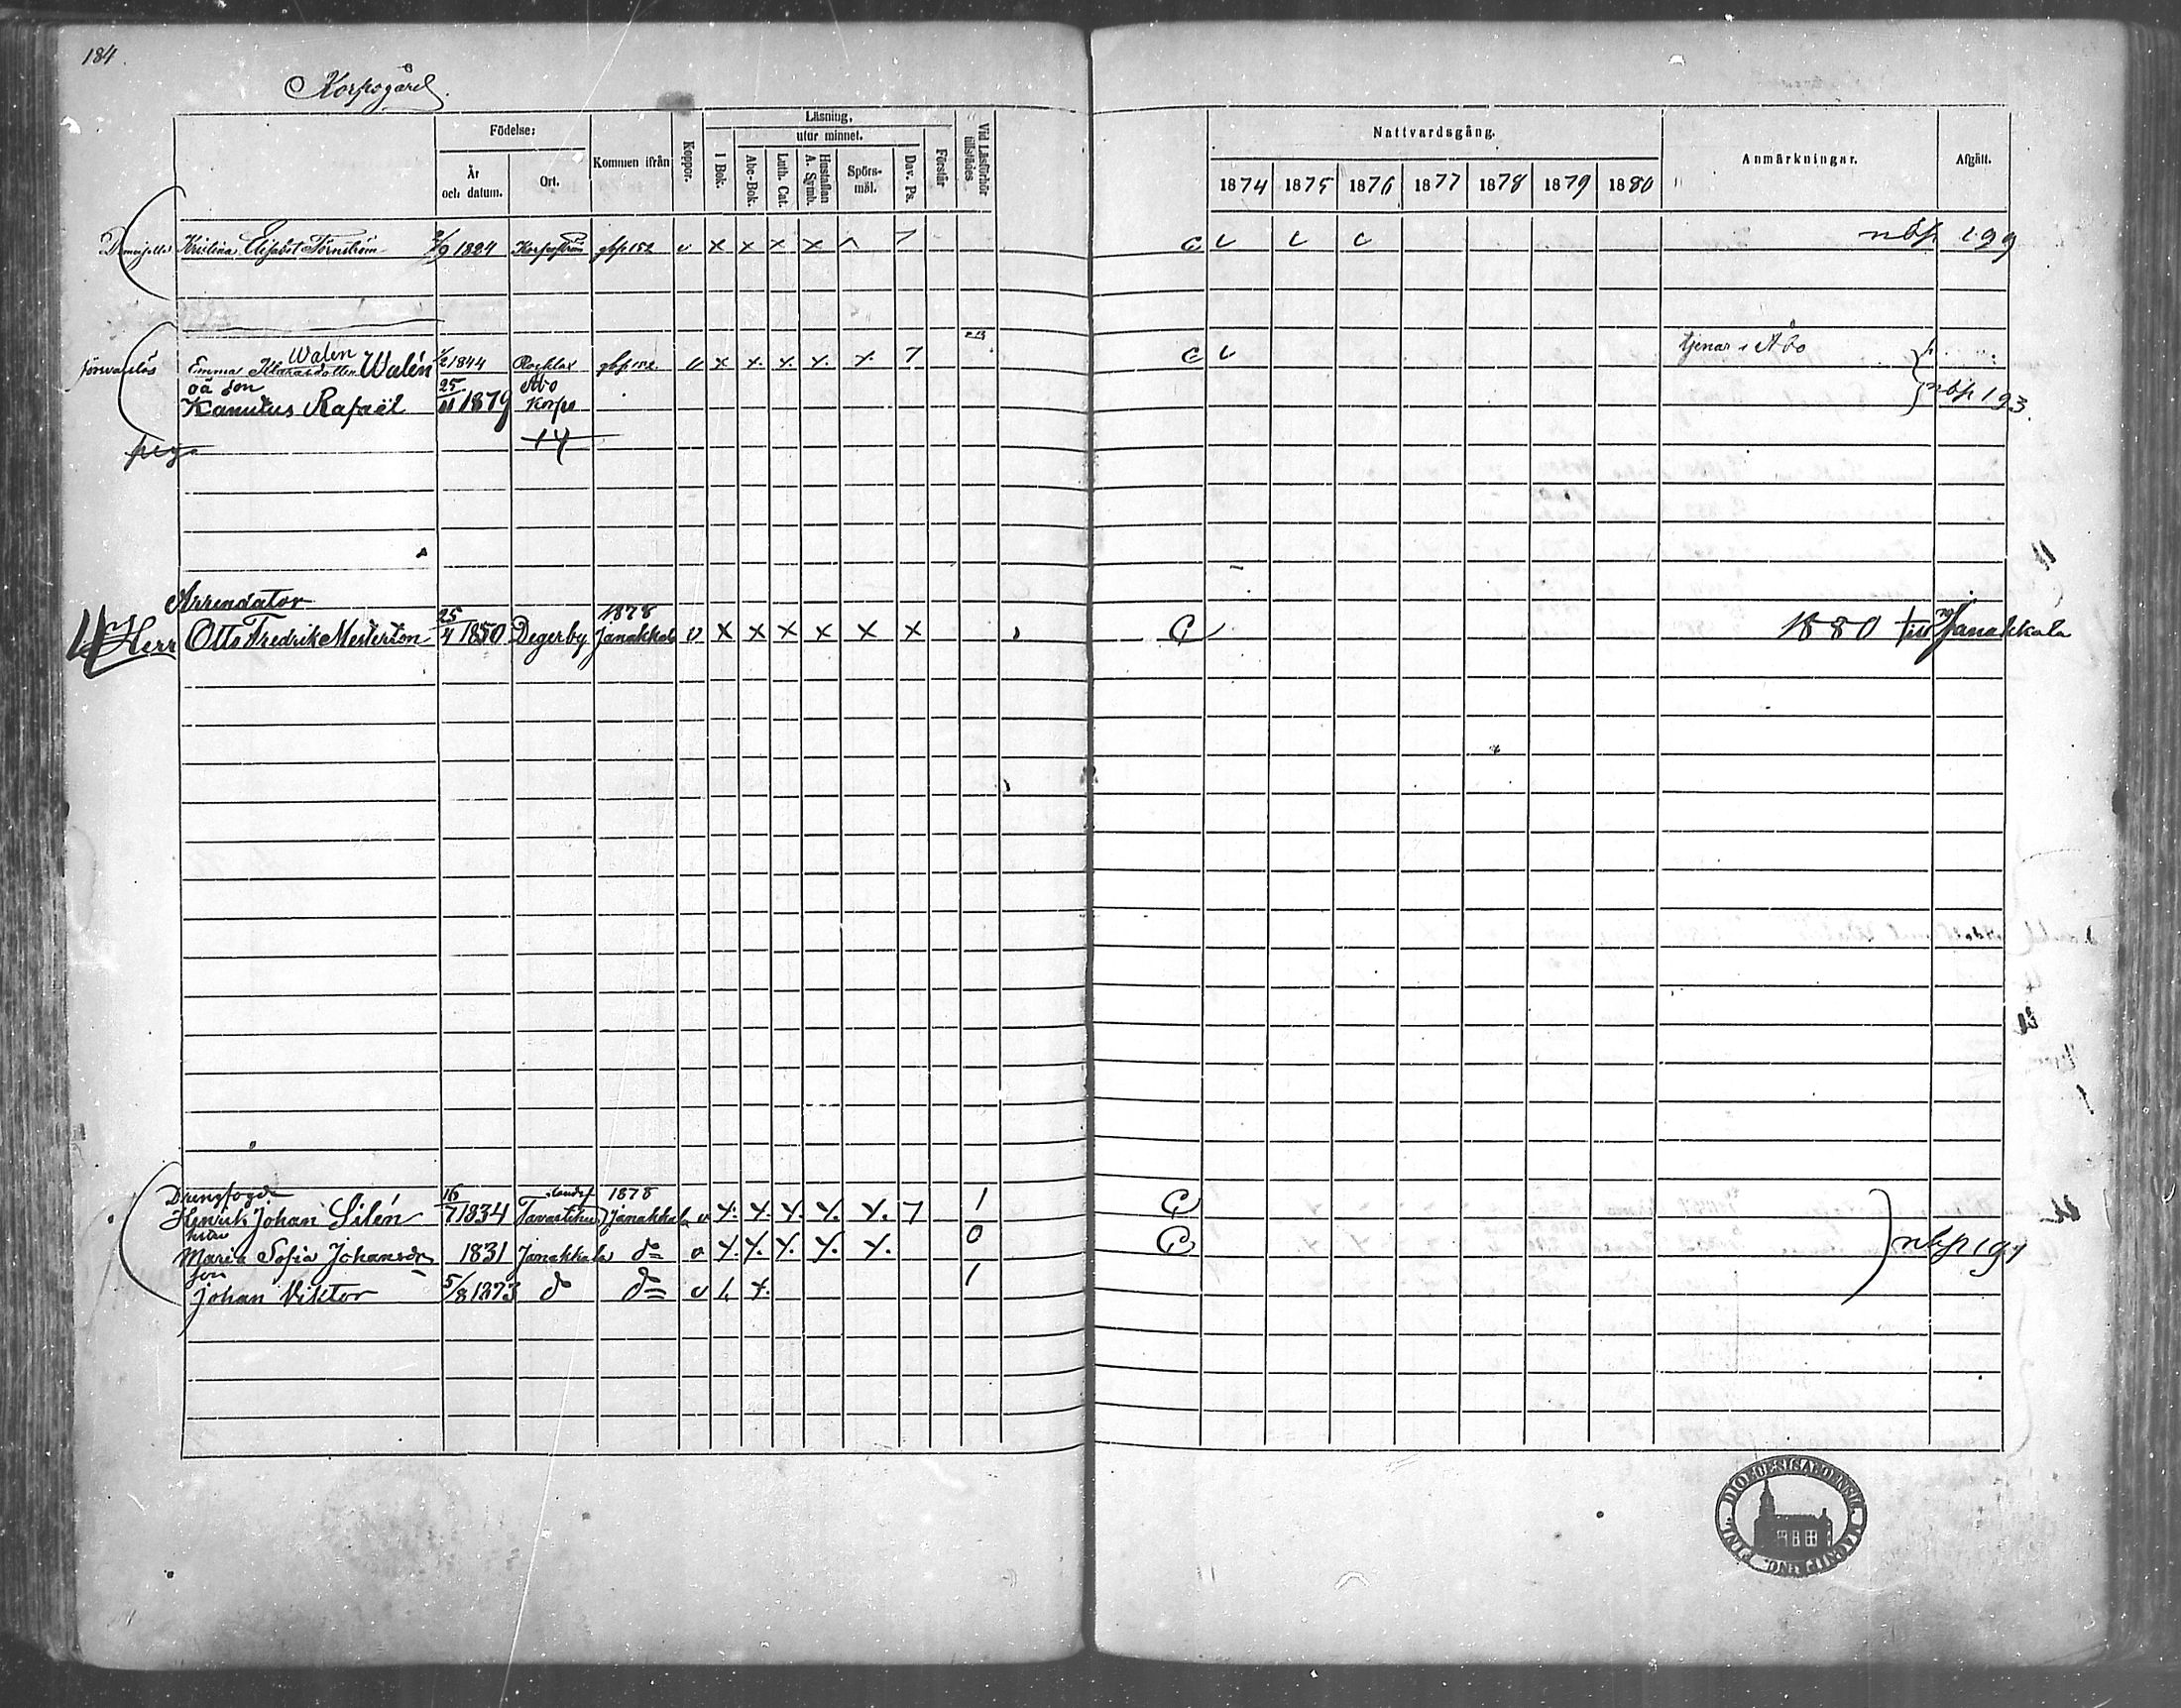 184.
Korpogård.
Födelse:
År och datum.
Ort.
Kommen ifrån
Koppor.
Läsning,
utur minnet.
I Bok.
Abc-Bok.
Luth. Cat.
Hustaflan A. Symb.
Spörsmål.
Dav. Ps.
Förstår
Vid Läsförhör tillstädes.
Nattvardsgång.
1874 1875 1876 1877 1878 1879 1880
Anmärkningar.
Afgått.
Kristina Elisabet Törnström 2/9 1824 gbp 152 v x x x x C nbp 199
Walen
Emma Walén 1/2 1844 gbp 152 v x x x x x C tjenar i Åbo
oä son 25 Åbo
Kanutus Rafaël 11 1879 Korpo nbp 193.
piga 14
Arrendator 1878
Herr Otto Fredrik Mesterton 25/4 1850 Degerby Janakkala v x x x x x x C 1880 till Janakkala
Drengfogde 16 landsf 1878
Henrik Johan Silén 7 1834 Janakkala v x x x x x 1 C
hu
Maria Sofia Johansdr 1831 Janakkala do v x x x x x 0 C
son
Johan Viktor 5/8 1873 do do v x 1
DIOECESIS ABOENSIS MAGNI PRINC. FINL.